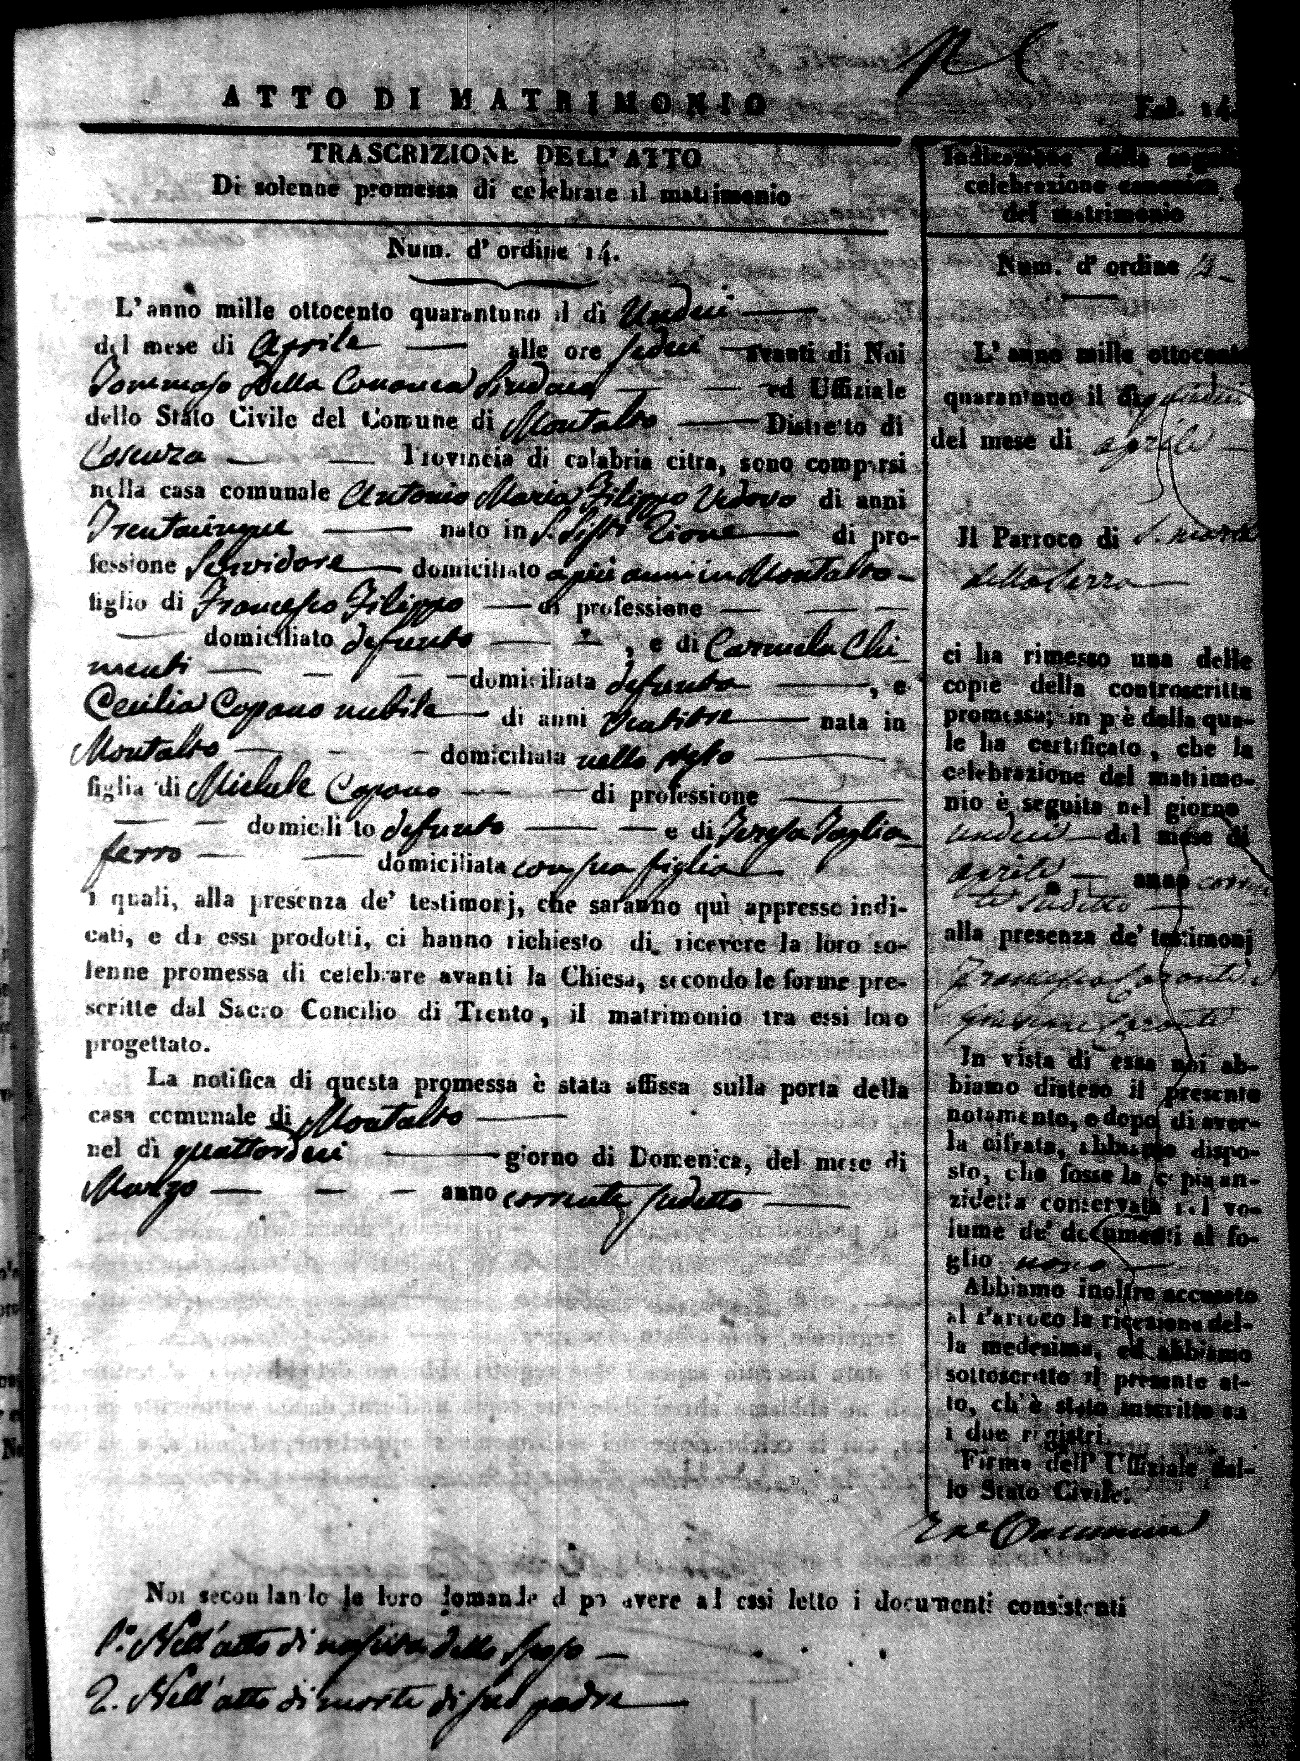 ATTO DI MATRIMONIO
Fol. 14.
TRASCRIZIONE DELL'ATTO
Di solenne promessa di celebrare il matrimonio
Num. d'ordine 14.
L'anno mille ottocento quarantuno il di Undeci
del mese di Aprile alle ore sedeci avanti di Noi
Tommaso Della Cononea Sindaco ed Uffiziale
dello Stato Civile del Comune di Montalto Distretto di
Cosenza Provincia di calabria citra, sono comparsi
nella casa comunale Antonio Maria Filippo Vedovo di anni
Trentacinque nato in S. Sisti Rione di pro-
fessione Servidore domiciliato a più anni in Montalto
figlio di Francesco Filippo di professione
domiciliato defunto , e di Carmela Chi
menti domiciliata defunta , e
Cecilia Copano nubile di anni ventitre nata in
Montalto domiciliata nello stesso
figlia di Michele Copano di professione
domicilito defunto e di Teresa Taglia
ferro domiciliata con sua figlia
i quali, alla presenza de' testimonj, che saranno quì appresso indi-
cati, e da essi prodotti, ci hanno richiesto di ricevere la loro so-
lenne promessa di celebrare avanti la Chiesa, secondo le forme pre-
scritte dal Sacro Concilio di Trento, il matrimonio tra essi loro
progettato.
La notifica di questa promessa è stata affissa sulla porta della
casa comunale di Montalto
nel dì quattordeci giorno di Domenica, del mese di
Marzo anno corrente sudetto
Indicazione della seguita
celebrazione canonica
del matrimonio
Num. d'ordine
L'anno mille ottocento
quarantuno il di
del mese di aprile
Il Parroco di S. Maria
della Serra
ci ha rimesso una delle
copie della controscritta
promessa; in piè della qua-
le ha certificato, che la
celebrazione del matrimo-
nio è seguita nel giorno
undeci del mese di
aprile anno corren
te sudetto
alla presenza de' testimonj
Francesco
Giuseppe
In vista di essa noi ab-
biamo disteso il presente
notamento, e dopo di aver-
la cifrata, abbiamo dispo-
sto, che fosse la copia an-
zidetta conservata nel vo-
lume de' documenti al fo-
glio nono
Abbiamo inoltre accusato
al Parroco la ricezione del-
la medesima, ed abbiamo
sottoscritto il presente at-
to, ch'è stato inscritto su
i due registri.
Firma dell' Uffiziale del-
lo Stato Civile:
Noi secondando le loro domande dopo avere ad essi letto i documenti consistenti
1.° Nell'atto di nascita dello sposo
2. Nell'atto di morte di suo padre